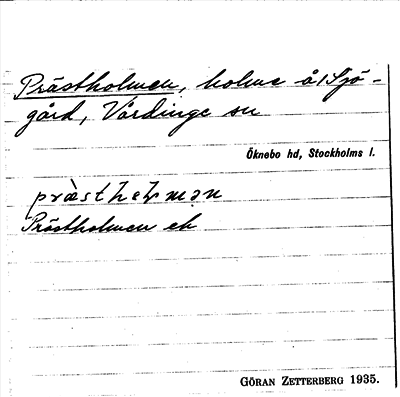 Prästholmen, holme å/Sjö-
gård, Vårdinge sn
Öknebo hd, Stockholms l.
Prästholmen ek
GÖRAN ZETTERBERG 1935.